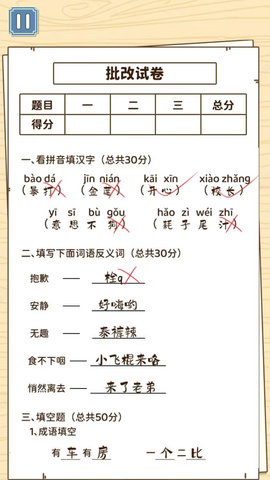 批改试卷
题目 一 二 三 总分
得分
一、看拼音填汉字（总共30分）
bào dá jīn nián kāi xīn xiào zhǎng
（暴打）（金莲）（开心）（校长）
yì sī bù gǒu hǎo zì wéi zhī
（意思不狗）（耗子尾汁）
二、填写下面词语反义词（总共30分）
抱歉 —— 栓q
安静 —— 好嗨哟
无趣 —— 泰裤辣
食不下咽 —— 小飞棍来咯
悄然离去 —— 来了老弟
三、填空题（总共50分）
1、成语填空
有车有房 一个二比